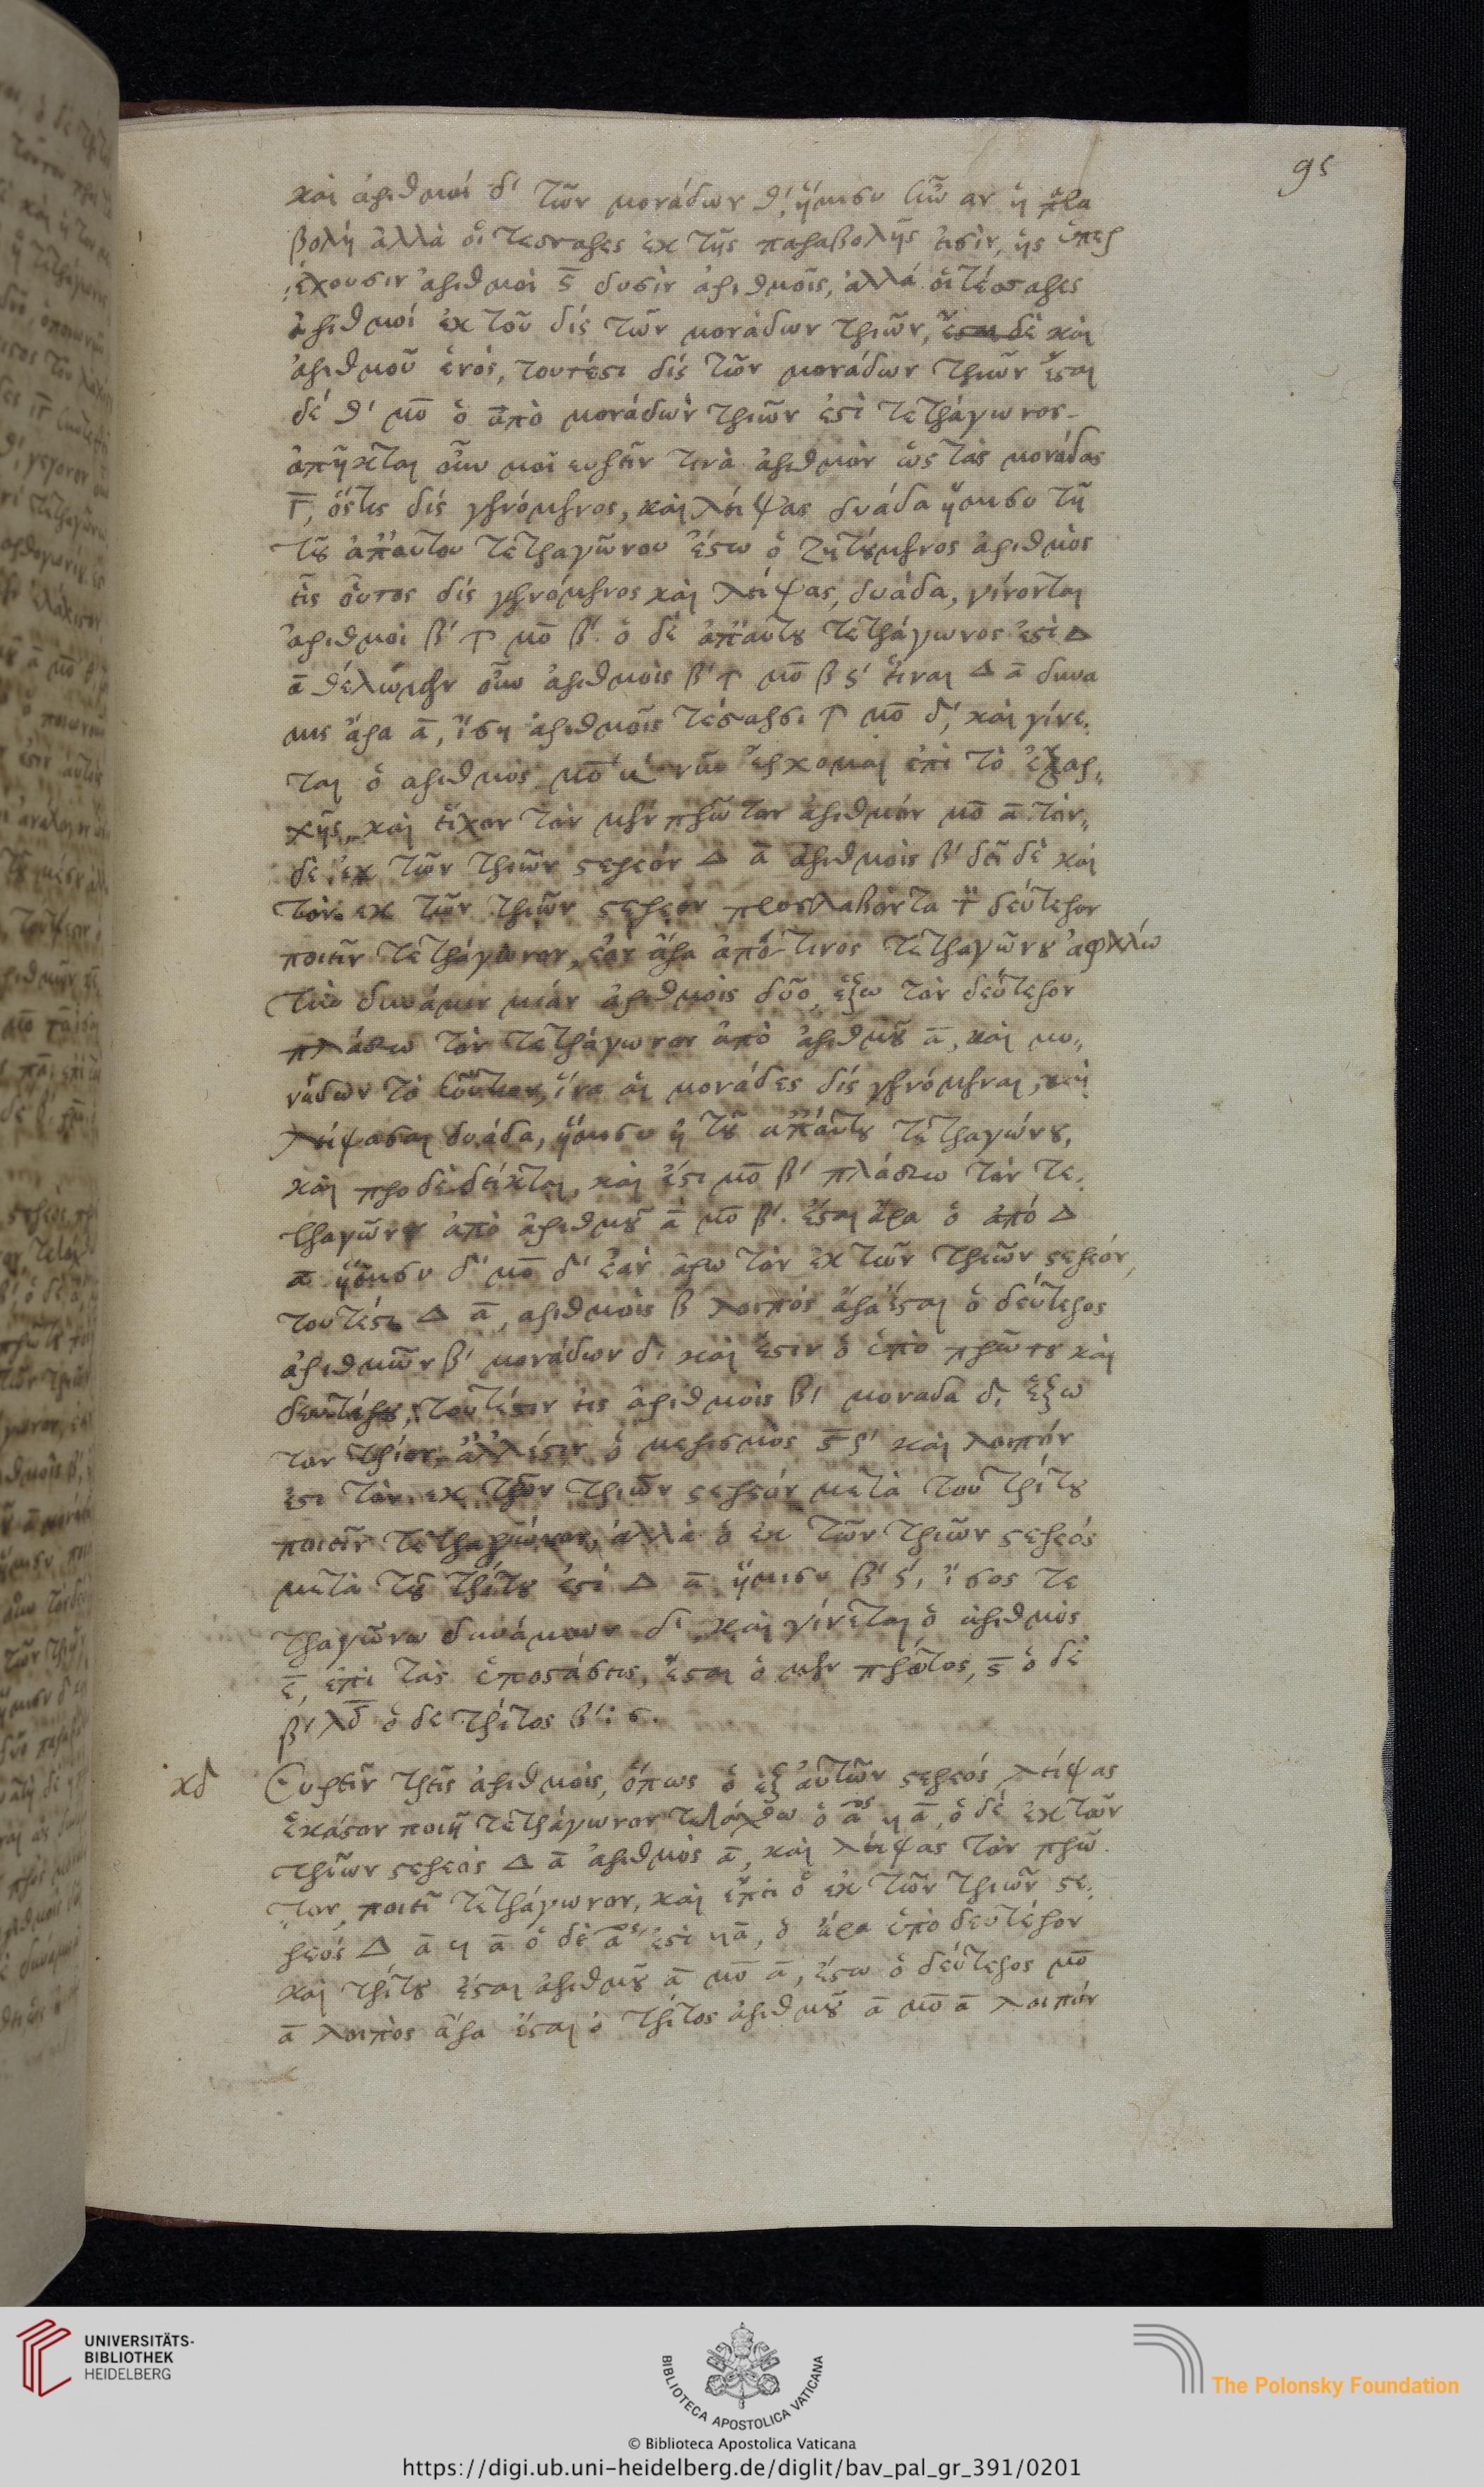 95
καὶ ἀριθμοί δ' τῶν μονάδων θ', ἥμισυ ἦν ἂν ἡ παρα
βολή ἀλλὰ οἱ τεσσαρες ἐκ τῆς παραβολῆς εἰσὶν, ἧς ὑπερ
έχουσιν ἀριθμοὶ ς̄ δυσὶν ἀριθμοῖς, ἀλλά οἱ τέσσαρες
ἀριθμοί ἐκ τοῦ δίς τῶν μονάδων τριῶν, καὶ
ἀριθμοῦ ἑνός, τουτέστι δίς τῶν μονάδων τριῶν ἔσται
δέ θ' μο ὁ ἀπὸ μονάδων τριῶν ἐστὶ τετράγωνος.
ἀπῆκται οὖν μοι ευρεῖν τινὰ ἀριθμὸν ὡς τὰς μονάδας
γ̄, ὅστις δίς γενόμενος, καὶ λείψας δυάδα
τοῦ ἀπ' αυτου τετραγώνου ἔστω ὁ ζητούμενος ἀριθμὸς
εἷς οὗτος δίς γενόμενος καὶ λείψας, δυάδα, γίνονται
ἀριθμοὶ β' ⩚ μο β'. ὁ δὲ ἀπ' αὐτοῦ τετράγωνος ἐστὶ Δ
ᾱ θέλωμεν οὖν ἀριθμοὺς β' ⩚ μο β ϛ' εἶναι Δ ᾱ δυνα
μις ἄρα ᾱ, ἴση ἀριθμοῖς τέσαρσι ⩚ μο δ', καὶ γίνε
ται ὁ αριθμὸς μο νῦν ἔρχομαι ἐπὶ τὸ ἐξαρ
χῆς, καὶ εἶχον τὸν μὲν πρῶτον ἀριθμόν μο ᾱ τὸν
δὲ ἐκ τῶν τριῶν στερεόν Δ ᾱ ἀριθμοὺς β' δεῖ δὲ καὶ
τὸν εκ τῶν τριῶν στερεὸν προσλαβόντα τ̄ δεύτερον
ποιεῖν τετράγωνον, ἐὰν ἄρα ἀπό τινος τετραγώνου ἀφελῶ
τὴν δυνάμιν μίαν ἀριθμοὺς δύο, ἕξω τὸν δεύτερον
πλάσσω τὸν τετράγωνον ἀπὸ ἀριθμοῦ ᾱ, καὶ μο
νάδων τοσούτων, ἵνα αἱ μονάδες δίς γενόμεναι, καὶ
λείψασαι δυάδα, τοῦ ἀπ' αὐτοῦ τετραγώνου,
καὶ προδέδεικται, καὶ ἔστι μο β' πλάσσω τὸν τε
τραγῶνον ἀπὸ ἀριθμοῦ ᾱ μο β'. ἔσται ἄρα ὁ ἀπό Δ
ᾱ δ' μο δ' ἐὰν ἄρω τὸν ἐκ τῶν τριῶν στερεόν,
τουτέστι Δ ᾱ, αριθμοὺς β λοιπός ἄρα ἔσται ὁ δεύτερος
ἀριθμῶν β' μονάδων δ. καὶ ἔστιν ὁ ὑπὸ πρῶτου καὶ
δευτέρου, τουτέστιν εἰς ἀριθμοὺς β' μοναδα δ. ἕξω
τον τρίτον, ἀλλ' ἔστιν ὁ μερισμὸς ς̄ ϛ' καὶ λοιπόν
ἐστι τὸν ἐκ τῶν τριῶν στερεόν μετὰ τοῦ τρίτου
ποιεῖν τετραγώνον, ἀλλὰ ὁ ἐκ τῶν τριῶν στερεός
μετὰ τοῦ τρίτου ἐστὶ Δ ᾱ ἥμισυ β' ϛ', ἴσος τε
τραγῶνω δυνάμεων δ, καὶ γίνεται ὁ ἀριθμὸς
ε̄, ἐπὶ τὰς ὑποστάσεις, ἔσται ὁ μὲν πρῶτος, ς̄ ὁ δὲ
β' λδ̄ ὁ δε τρίτος β': ϛ.
κδ Εὑρεῖν τρεῖς ἀριθμοὺς, ὅπως ὁ ἐξ αὐτῶν στερεός λείψας
ἕκαστον ποιῇ τετράγωνον τετάχθω ὁ ᾱος ᾱ, ὁ δέ ἐκ τῶν
τριῶν στερεὸς Δ ᾱ ἀριθμὸς ᾱ, καὶ λείψας τὸν πρῶ
τον, ποιεῖ τετράγωνον, καὶ ἐπεὶ ὁ ἐκ τῶν τριῶν στε
ρεός Δ ᾱ ᾱ ὁ δὲ ᾱος ἐστὶ ᾱ, ὁ ἄρα ὑπὸ δευτέρου
καὶ τρίτου ἔσται ἀριθμοῦ ᾱ μο ᾱ, ἔστω ὁ δεύτερος μο
ᾱ λοιπὸς ἄρα ἔσται ὁ τρίτος ἀριθμοῦ ᾱ μο ᾱ λοιπόν
UNIVERSITÄTS-
BIBLIOTHEK
HEIDELBERG
BIBLIOTECA APOSTOLICA VATICANA
The Polonsky Foundation
© Biblioteca Apostolica Vaticana
https://digi.ub.uni-heidelberg.de/diglit/bav_pal_gr_391/0201